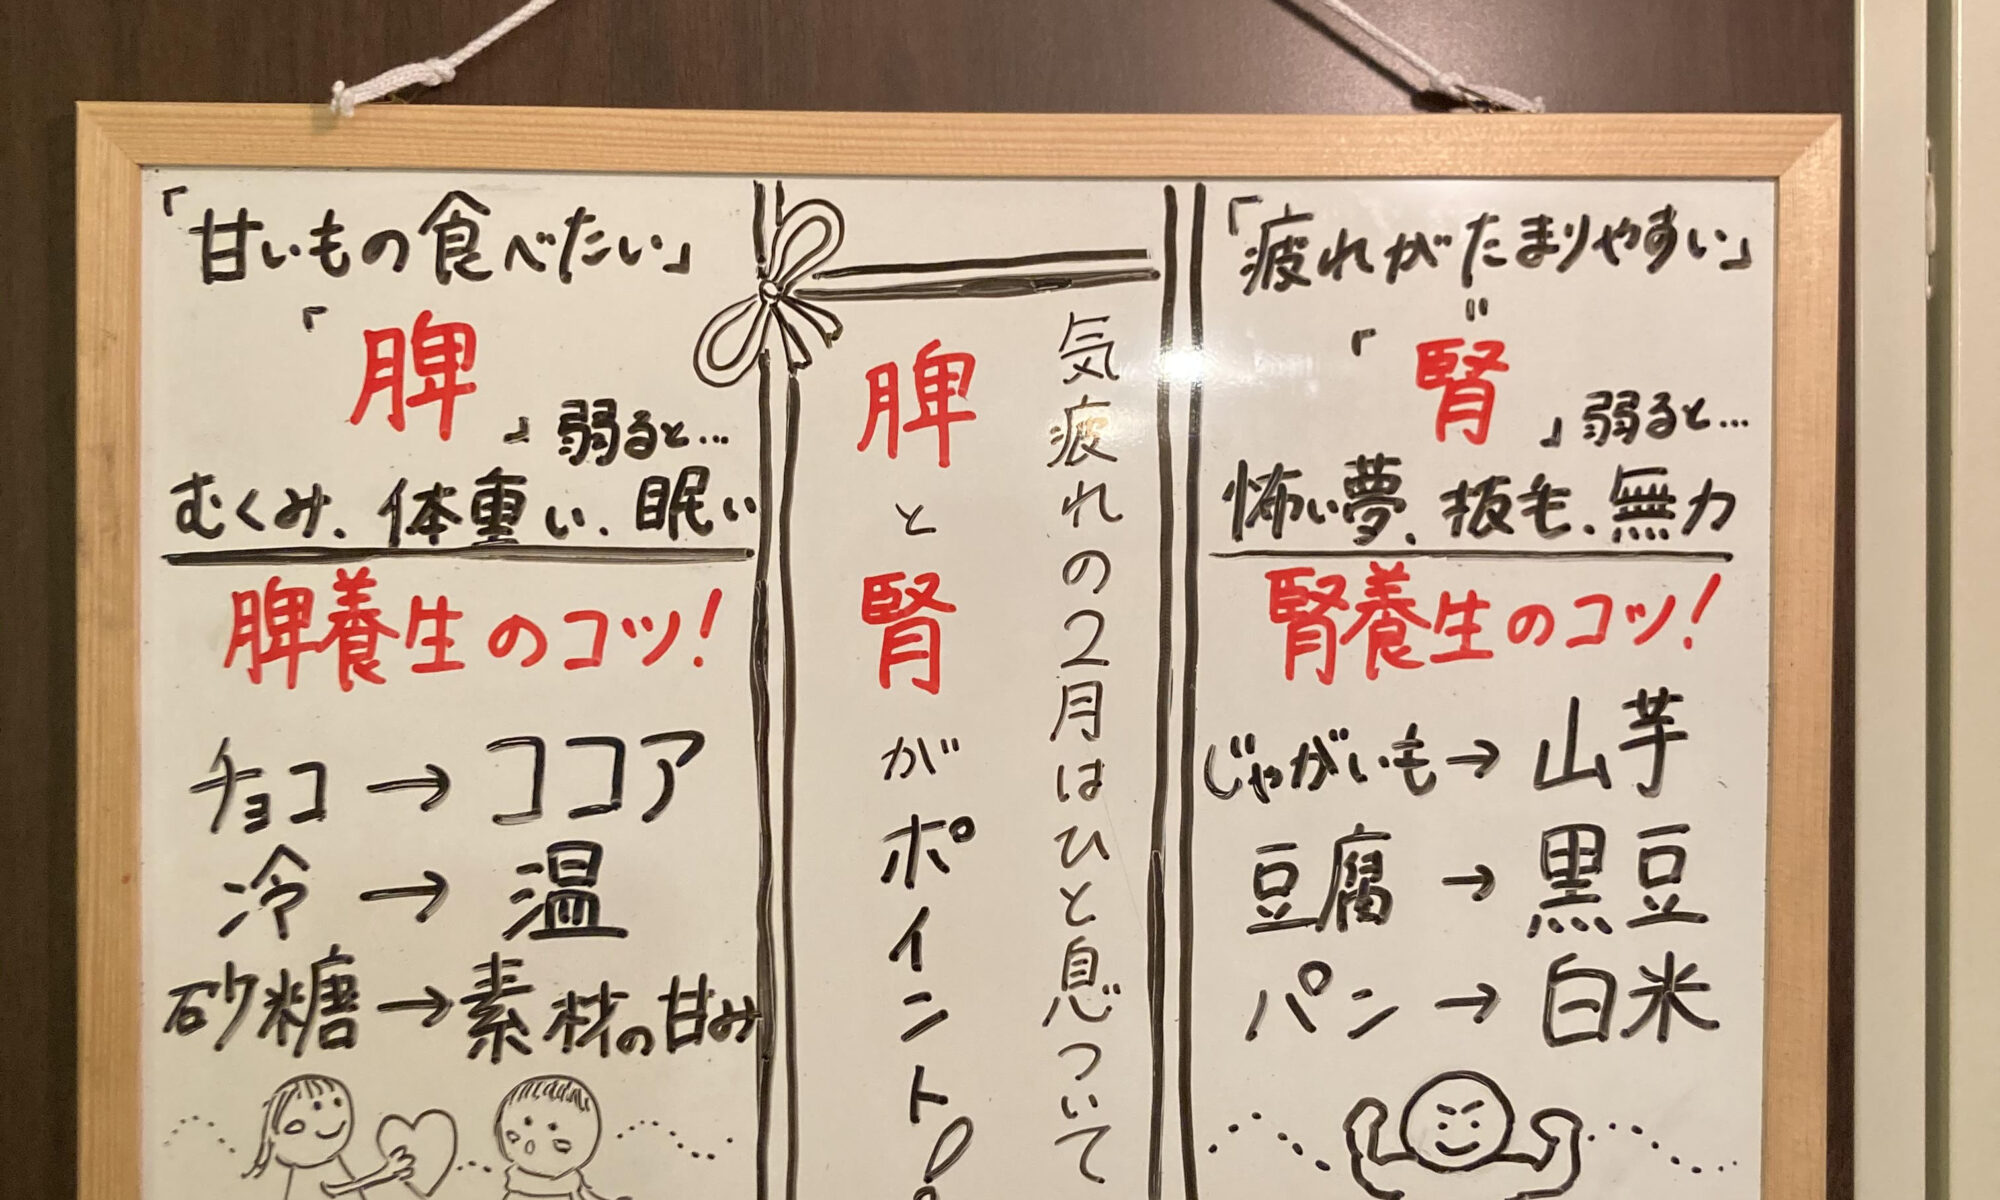 「甘いもの食べたい」
「脾」弱ると…
むくみ、体重い、眠い
脾養生のコツ!
チョコ→ココア
冷→温
砂糖→素材の甘み
気疲れの2月はひと息ついて
脾と腎がポイント!
「疲れがたまりやすい」
=
「腎」弱ると…
怖い夢、抜毛、無力
腎養生のコツ!
じゃがいも→山芋
豆腐→黒豆
パン→白米